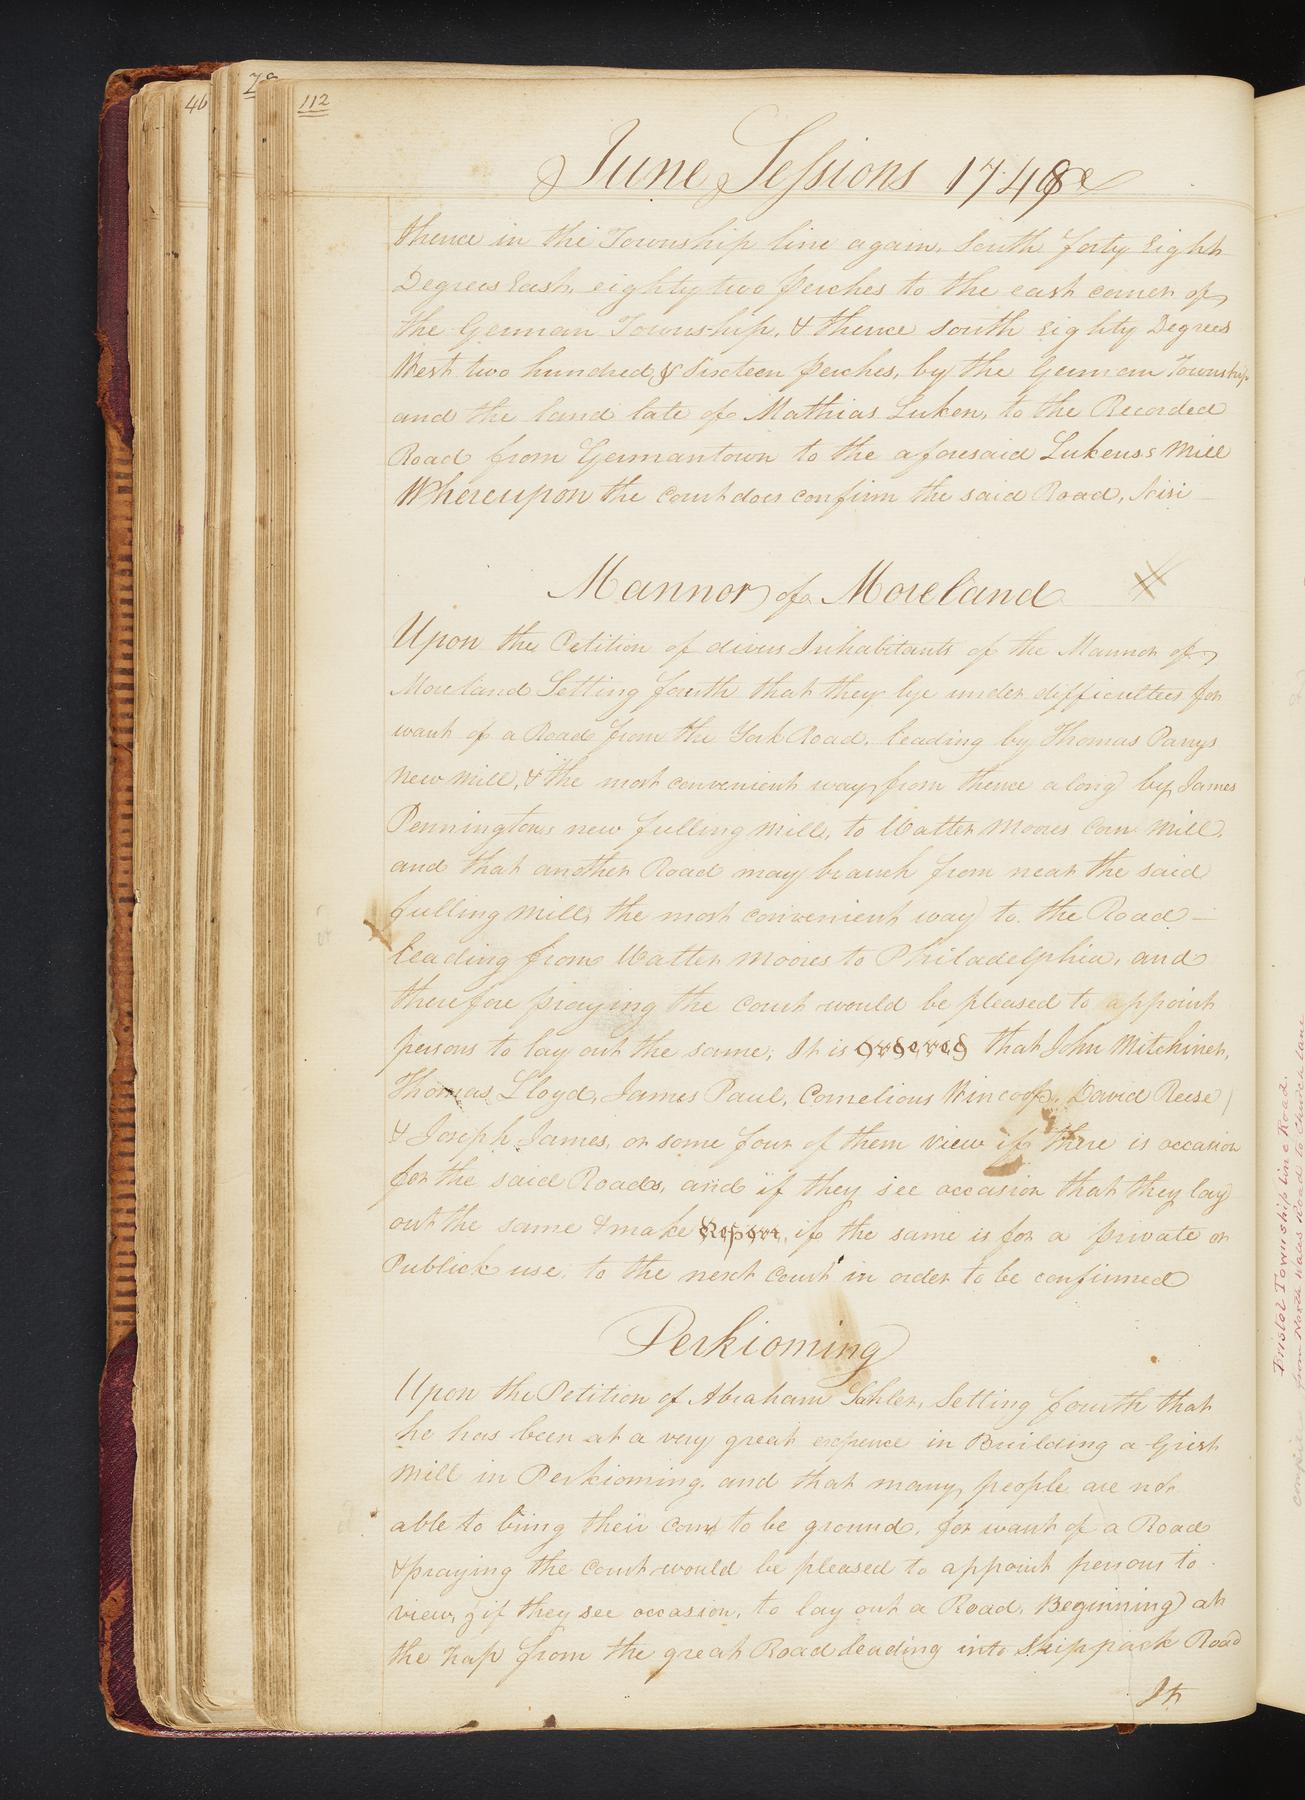 46
112
June Sessions 1748 &c
thence in the Township line again, South forty Eight
Degrees East, eighty two perches to the east corner of
the German Township, & thence south Eighty Degrees
West two hundred & Sixteen perches, by the German Township
and the land late of Mathias Luken, to the Recorded
Road from Germantown to the aforesaid Lukenss Mill
Whereupon the court does confirm the said Road, Nisi
Mannor of Moreland
Upon the Petition of divers Inhabitants of the Mannor of
Moreland Setting fourth that they lye under difficulties for
want of a Road from the York Road, leading by Thomas Parrys
new mill, & the most convenient way from thence along by James
Penningtons new fulling mill, to Watter Moores Corn Mill,
and that another Road may branch from near the said
fulling mill, the most convenient way to the Road
leading from Watter Moores to Philadelphia, and
therefore praying the court would be pleased to appoint
persons to lay out the same; It is Ordered that John Mitchiner,
Thomas Lloyd, James Paul, Cornelious Wincoop, David Reese
& Joseph James, or some four of them view if there is occasion
for the said Roads, and if they see occasion that they lay
out the same & make Report, if the same is for a private or
Publick use, to the next Court in order to be confirmed
Perkioming
Upon the Petition of Abraham Sahler, Setting fourth that
he has been at a very great expence in Building a Grist
Mill in Perkioming, and that many people are not
able to bring their corn to be ground, for want of a Road
& praying the court would be pleased to appoint persons to
view, & if they see occasion, to lay out a Road, Beginning at
the trap from the great Road leading into Skippack Road
It
Bristol Township line Road.
from North Wales Road to Church Lane